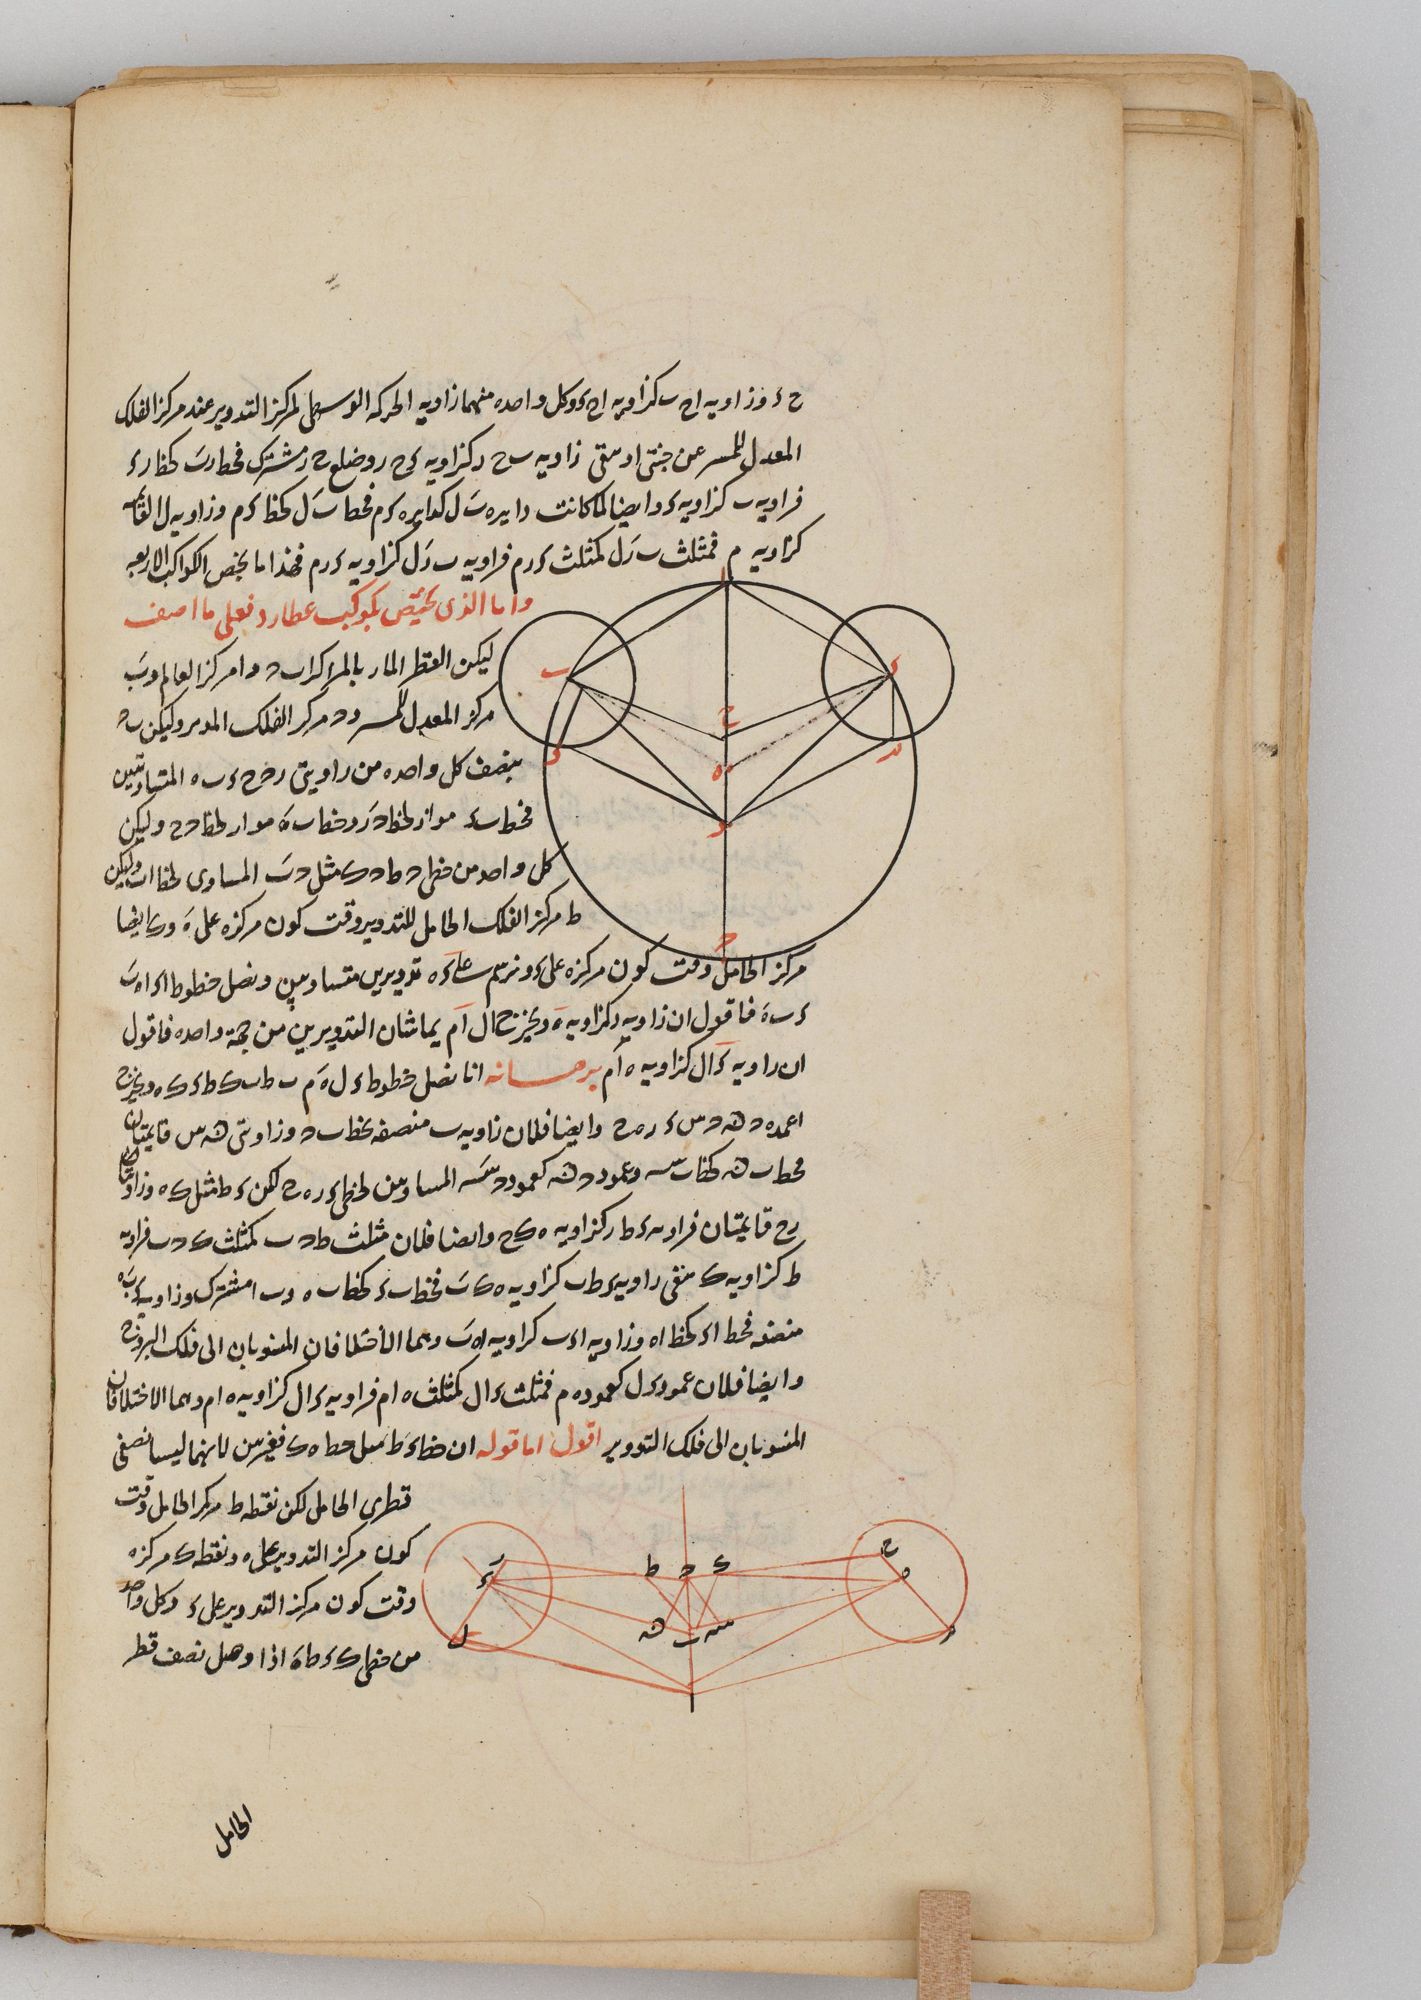 ح ء وزاويه اح ب كزاويه اح ء وكل واحده منهما زاويه الحركه الوسطى لمركز التدوير عند مركز الفلك
المعدل للمسير عن جنبتى ا وسقى زاويه ب ح ر كزاويه ء ح ر وضلع ح ر مشترك فخط ر ب كخط ر ء
فزاويه ب كزاويه ء وايضا لما كانت دايره ب ل كدايره ء م فخط ب ل كخط ء م وزاويه ل القائمه
كزاويه م فمثلث ب ر ل كمثلث ء ر م فزاويه ب ر ل كزاويه ء ر م فهذا ما يخص الكواكب الاربعه
واما الذى يختص بكوكب عطارد فعلى ما اصف
ليكن القطر المار بالمراكز ا ب ح وا مركز العالم وب
مركز المعدل للمسير وح مركز الفلك المدير وليكن ب ح
ينصف كل واحده من زاويتى ر ح ح ء ب ه المتساويتين
فخط ب ء مواز لخط ح ر وخط ب ه مواز لخط ح ح وليكن
كل واحد من خطى ح ط ح ك مثل ح ب المساوى لخط ا ب وليكن
ط مركز الفلك الحامل للتدوير وقت كون مركزه على ه وك ايضا
مركز الحامل وقت كون مركزه على ء ونرسم على ء ه تدويرين متساويين ونصل خطوط ا ء ا ه ب
ء ب ه فاقول ان زاويه ء كزاويه ه ونخرج ا ل ا م يماسان التدويرين من جهة واحده فاقول
ان زاويه ء ا ل كزاويه ه ا م برهانه انا نصل خطوط ء ل ه م ب ط ب ك ط ء ك ه ونخرج
اعمده ح ن ح س ء ر ه ح وايضا فلان زاويه ب منصفه بخط ب ح وزاويتى ن س قايمتان
فخط ب ن كخط ب س وعمود ح ن كعمود ح س المساويين لخطى ء ر ه ح لكن ء ط مثل ك ه وزاويتا
ر ح قايمتان فزاويه ء ط ر كزاويه ه ك ح وايضا فلان مثلث ط ح ب كمثلث ك ح ب فزاويه
ط كزاويه ك سقى زاويه ء ط ب كزاويه ه ك ب فخط ب ء كخط ب ه وب ا مشترك وزاويه ء ب ه
منصفه فخط ا ء كخط ا ه وزاويه ا ء ب كزاويه ا ه ب وهما الاختلافان المنسوبان الى فلك البروج
وايضا فلان عمود ء ل كعمود ه م فمثلث ء ا ل كمثلث ه ا م فزاويه ء ا ل كزاويه ه ا م وهما الاختلافان
المنسوبان الى فلك التدوير اقول اما قوله ان خط ء ط مثل خط ه ك فغير بين لانهما ليسا نصفى
قطرى الحامل لكن نقطه ط مركز الحامل وقت
كون مركز التدوير على ه ونقطه ك مركزه
وقت كون مركز التدوير على ء وكل واحد
من خطى ك ء ط ه اذا وصل نصف قطر
الحامل